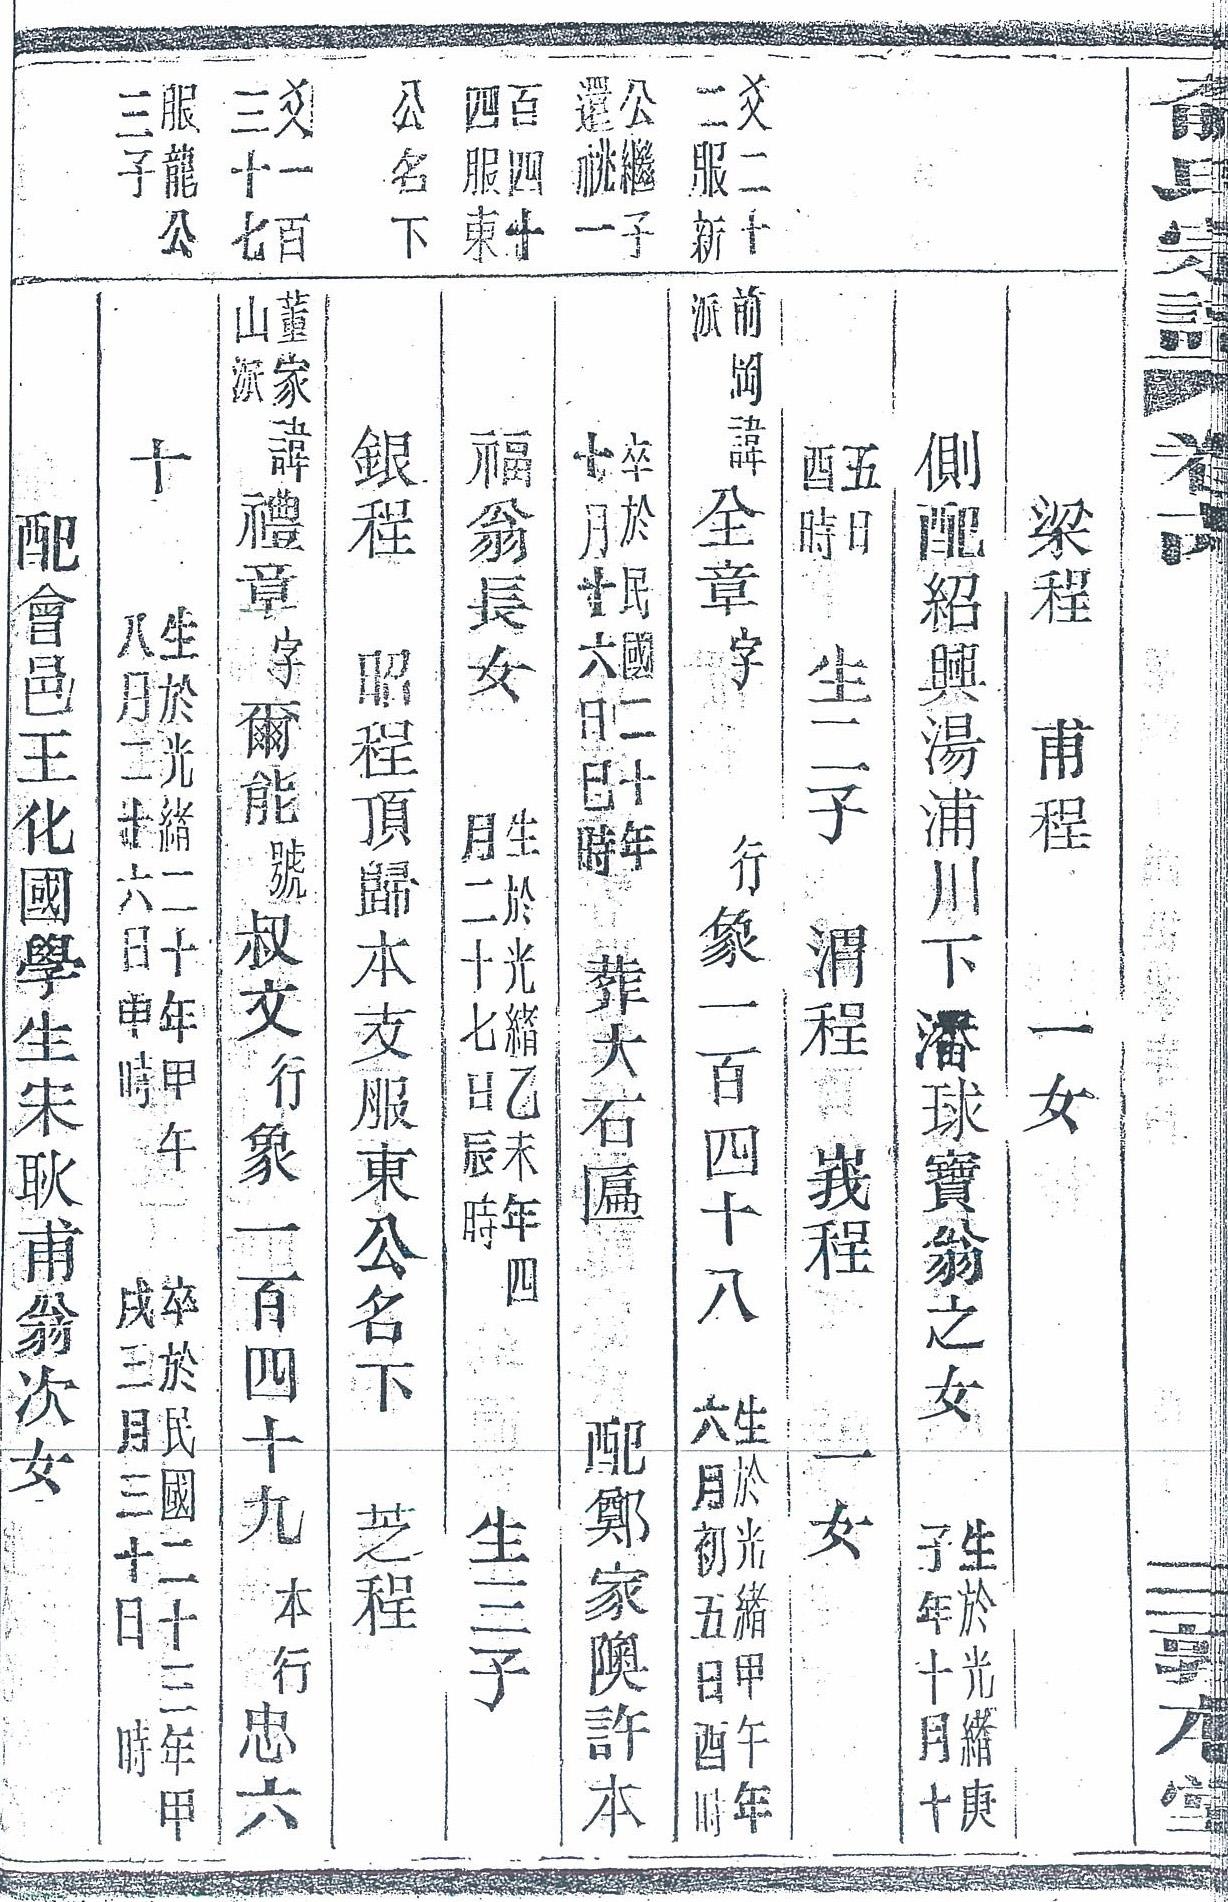 俞氏宗譜 卷 敦本堂
梁程 甫程 一女
側配紹興湯浦川下潘球寶翁之女 生於光緒庚子年十月十
五日酉時 生二子 渭程 峩程 一女
父二十二服新
前岡派
諱全章字 行象一百四十八 生於光緒甲午年六月初五日酉時
公繼子還祧一
卒於民國二十年七月廿六日巳時 葬大石匾 配鄭家隩許本
百四十四服東
福翁長女 生於光緒乙未年四月二十七日辰時 生三子
公名下
銀程 昭程頂歸本支服東公名下 芝程
父一百三十七
董家山派
諱禮章字爾能號叔文行象一百四十九 本行忠六
服龍公三子
十 生於光緒二十年甲午八月二十六日申時 卒於民國二十三年甲戌三月三十日 時
配會邑王化國學生宋耿甫翁次女